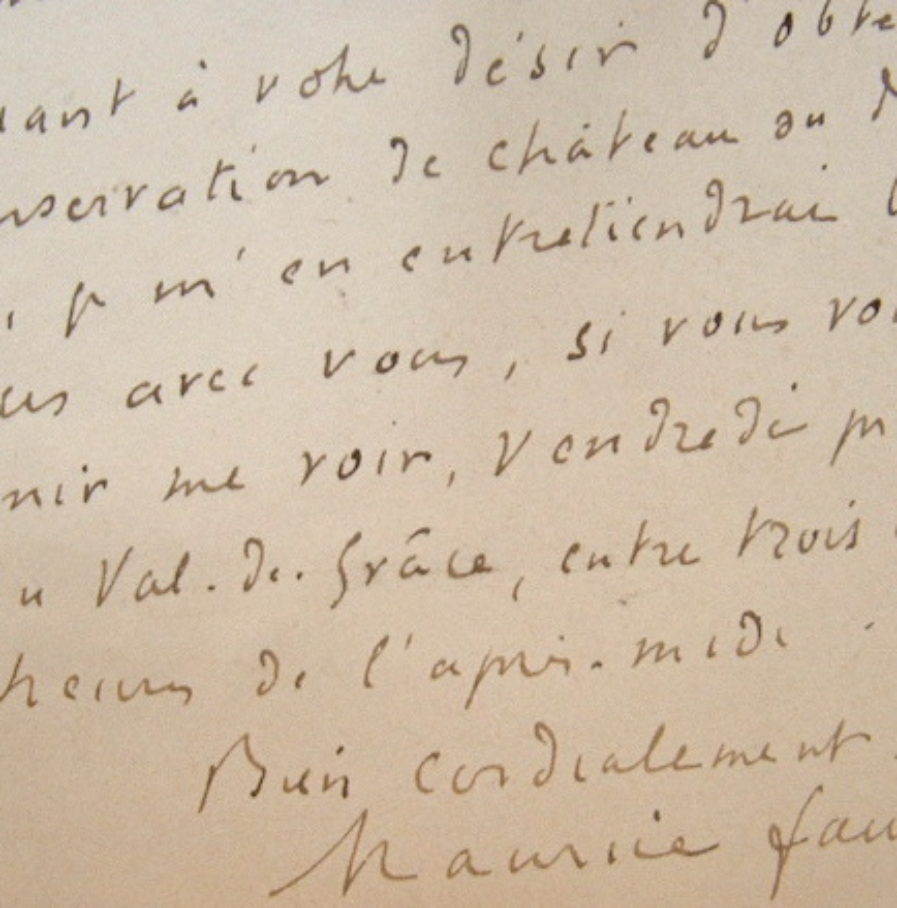 uant à votre désir d'obte
nservation de château ou
, je m'en entretiendrai
us avec vous, si vous vou
nir me voir, Vendredi pr
u Val-de-Grâce, entre trois
heures de l'après-midi.
Bien cordialement.
Maurice Fau